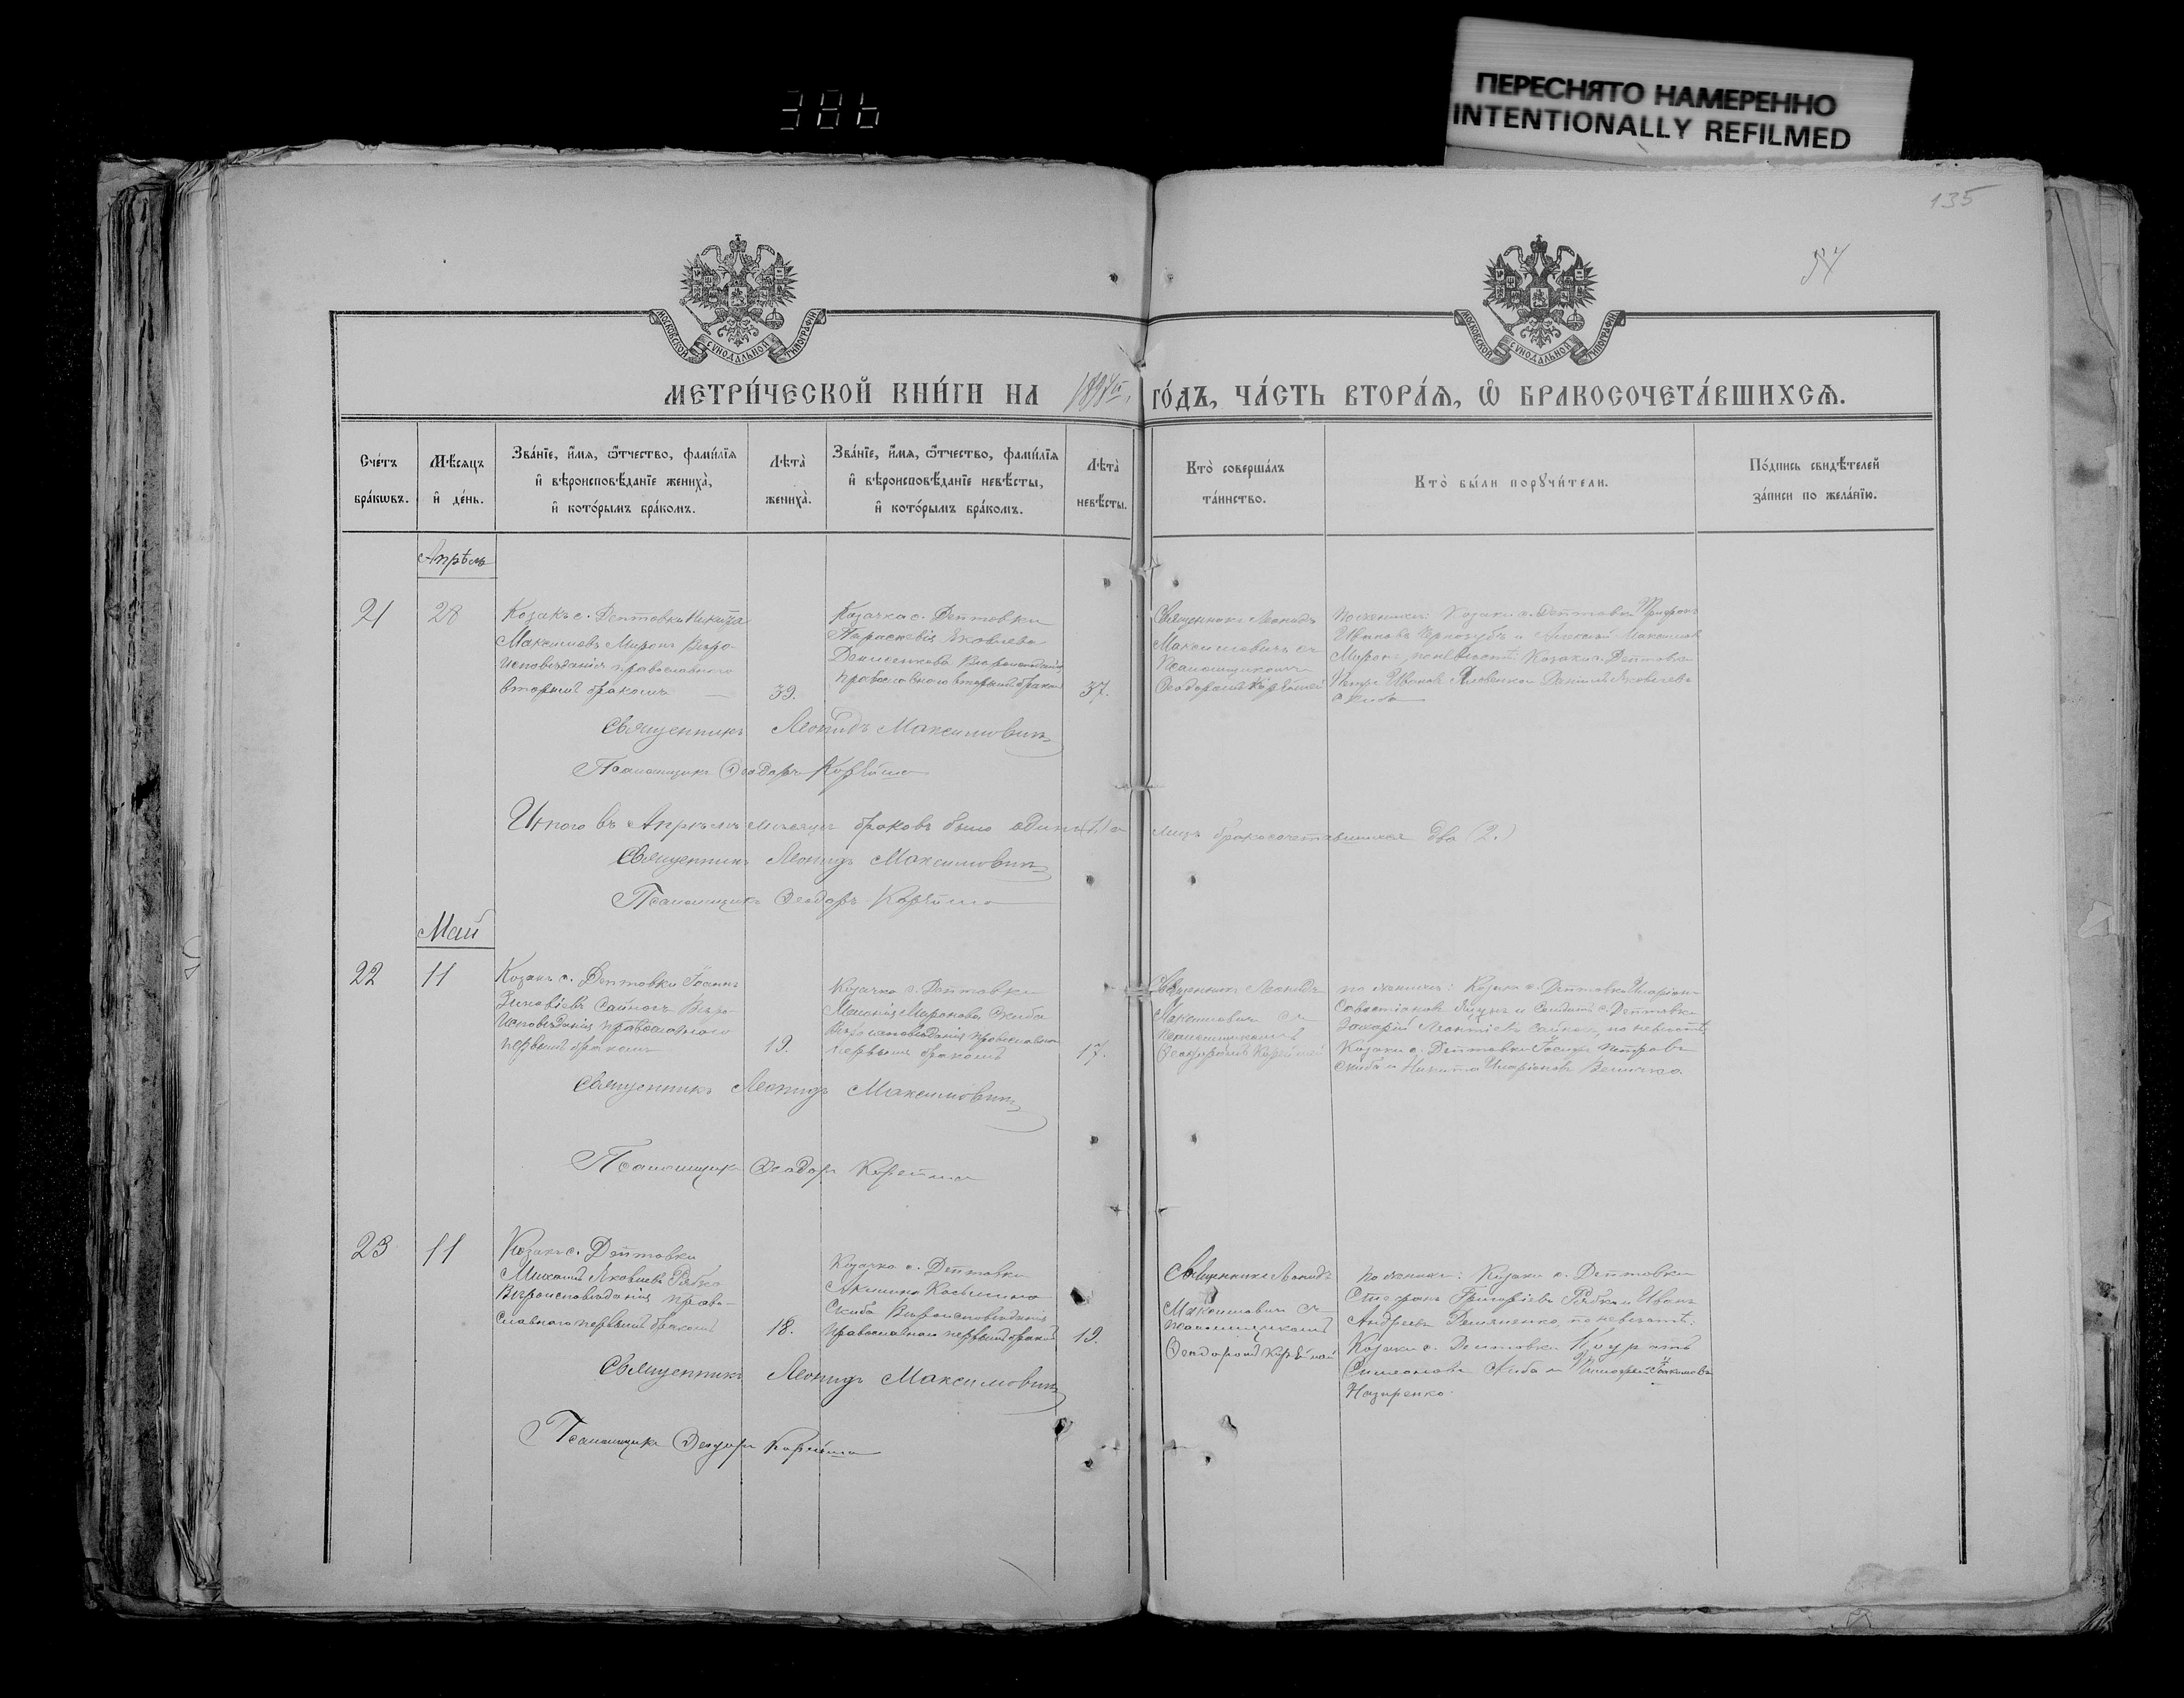 386
ПЕРЕСНЯТО НАМЕРЕННО
INTENTIONALLY REFILMED
135
МОСКОВСКОЙ СѴНОДАЛЬНОЙ ТИПОГРАФІИ
МОСКОВСКОЙ СѴНОДАЛЬНОЙ ТИПОГРАФІИ
МЕТРИ́ЧЕСКОЙ КНИ́ГИ НА
ГО́ДЪ, ЧА́СТЬ ВТОРА́Ѧ, Ѡ҆ БРАКОСОЧЕТА́ВШИХСѦ.
Сче́тъ
бра́кѡвъ.
Мѣ́сяцъ
и҆ де́нь.
Зва́нїе, и҆́мѧ, ѻ҆́тчество, фами́лїѧ
и҆ вѣроисповѣ́данїе жениха̀,
и҆ кото́рымъ бра́комъ.
Лѣта̀
жениха̀.
Зва́нїе, и҆́мѧ, ѻ҆́тчество, фами́лїѧ
и҆ вѣроисповѣ́данїе невѣ́сты,
и҆ кото́рымъ бра́комъ.
Лѣта̀
невѣ́сты.
Кто̀ соверша́лъ
та́инство.
Кто̀ бы́ли порꙋчи́тели.
По́дпись свидѣ́телей
за́писи по жела́нїю.
Апрѣль
21
28
Козакъ с. Дептовки Никита
Максимовъ Миронъ Вѣро-
исповѣданія православнаго
вторымъ бракомъ
39.
Козачка с. Дептовки
Параскевія Яковлева
Денисенкова Вѣроисповѣданія
православнаго вторымъ бракомъ
37.
Священникъ Леонидъ
Максимовичъ съ
Псаломщикомъ
Ѳеодоромъ
По женихѣ: Козаки с. Дептовки Трифонъ
Ивановъ и Алексѣй Максимовъ
Миронъ, по невѣстѣ: Козаки с. Дептовки
Петръ Ивановъ и Даніилъ Яковлевъ
Скиба
Священникъ Леонидъ Максимовичъ
Псаломщикъ Ѳеодоръ
Итого въ Апрѣлѣ мѣсяцѣ браковъ было одинъ (1) а лицъ бракосочетавшихся два (2.)
Священникъ Леонидъ Максимовичъ
Псаломщикъ Ѳеодоръ
Май
22
11
Козакъ с. Дептовки Іоаннъ
Зиновіевъ Вѣро-
исповѣданія православнаго
первымъ бракомъ
19.
Козачка с. Дептовки
Миронова Скиба
Вѣроисповѣданія православнаго
первымъ бракомъ
17.
Священникъ Леонидъ
Максимовичъ съ
псаломщикомъ
Ѳеодоромъ
по женихѣ: Козаки с. Дептовки Иларіонъ
и Солдатъ с. Дептовки
Захарій Леонтіевъ по невѣстѣ
Козаки с. Дептовки Іосифъ Петровъ
Скиба и Никита Иларіоновъ Величко.
Священникъ Леонидъ Максимовичъ
Псаломщикъ Ѳеодоръ
23
11
Козакъ с. Дептовки
Михаилъ Яковлевъ Рябко
Вѣроисповѣданія право-
славнаго первымъ бракомъ
18.
Козачка с. Дептовки
Акилина Косьмина
Скиба Вѣроисповѣданія
православнаго первымъ бракомъ
19.
Священникъ Леонидъ
Максимовичъ съ
псаломщикомъ
Ѳеодоромъ
По женихѣ: Козаки с. Дептовки
Стефанъ Григоріевъ Рябко и Иванъ
Андреевъ по невѣстѣ:
Козаки с. Дептовки
Симеоновъ Скиба и Тимофей
Назаренко.
Священникъ Леонидъ Максимовичъ
Псаломщикъ Ѳеодоръ